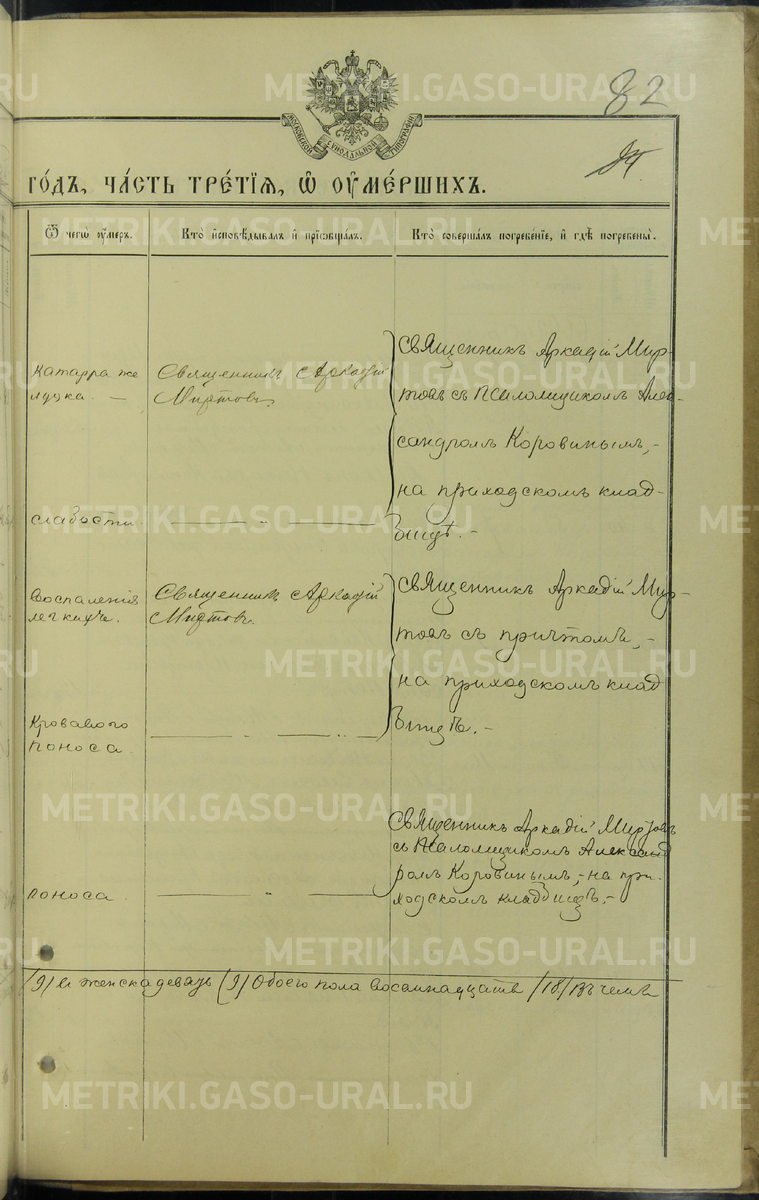 82
МОСКОВСКОЙ СѴНОДАЛЬНОЙ ТИПОГРАФІИ
ГО́ДЪ, ЧА́СТЬ ТРЕ́ТІѦ, Ѿ ОУМЕ́РШИХЪ.
Ѿ чегѡ̀ оу҆́меръ.
Кто̀ и҆сповѣ́дывалъ и҆ прїѡбща́лъ.
Кто̀ соверша́лъ погребе́нїе, и҆ гдѣ̀ погребены̀.
Катарра же
лудка. —
Священникъ Аркадій
Миртовъ.
Священникъ Аркадій Мир-
товъ съ псаломщикомъ Алек-
сандромъ Коровинымъ, -
на приходскомъ клад-
бищѣ. -
слабости.
— „ —
Воспаленія
легкихъ.
Священникъ Аркадій
Миртовъ.
Священникъ Аркадій Мир-
товъ съ причтомъ, -
на приходскомъ клад
бищѣ. -
Кроваваго
поноса.
— „ —
поноса.
— „ —
Священникъ Аркадій Миртовъ
съ псаломщикомъ Александ
ромъ Коровинымъ, - на при
ходскомъ кладбищѣ. -
/9/ и женска девять /9/ Обоего пола восемнадцать /18/ Въ чемъ
METRIKI.GASO-URAL.RU